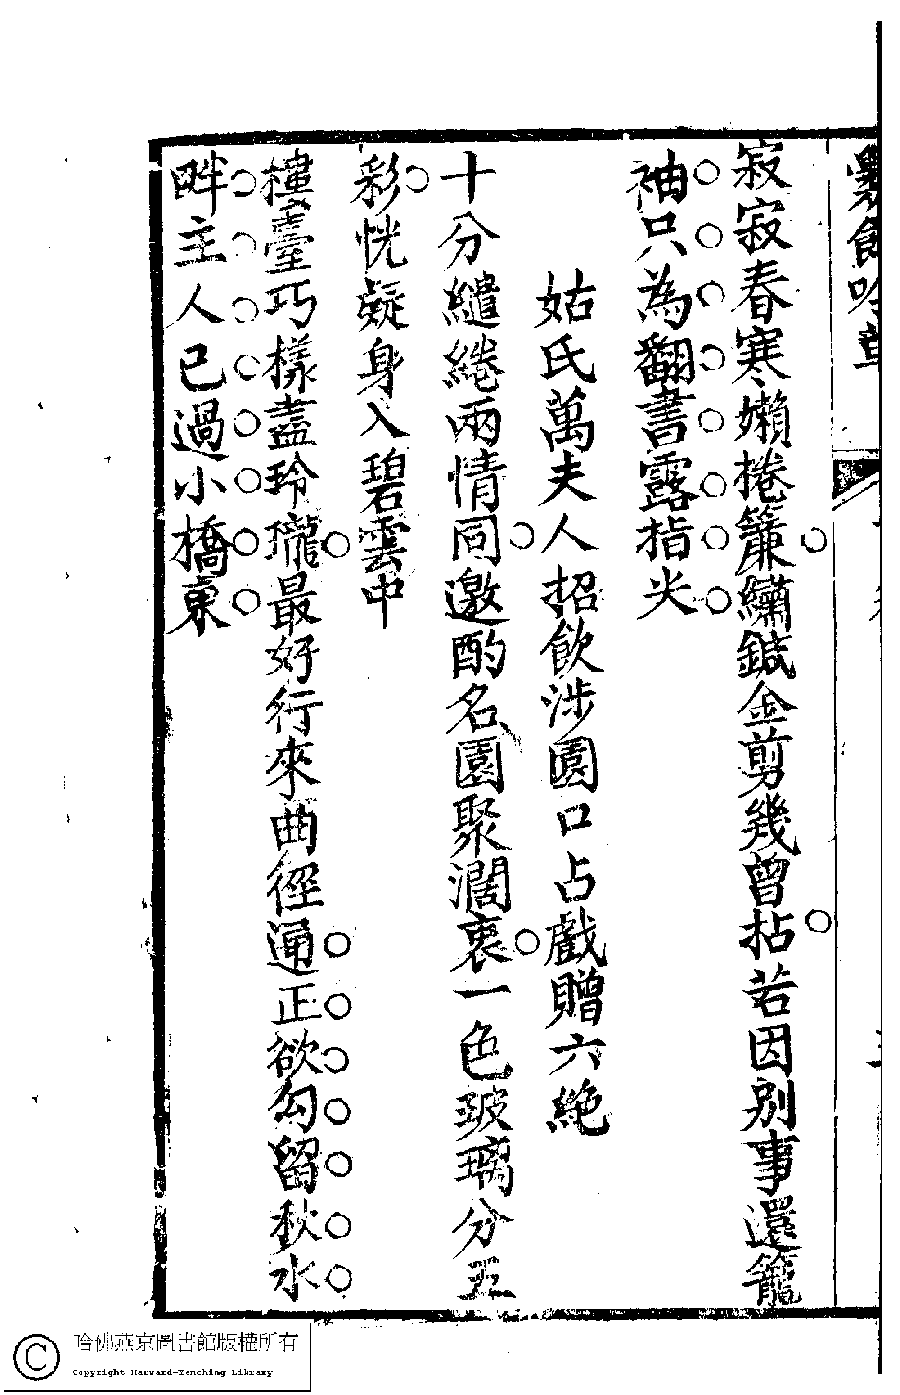 寂寂春寒嬾捲簾繡鍼金剪幾曾拈若因別事還籠
袖只為翻書露指尖
姑氏萬夫人招飲涉園口占戲贈六絕
十分繾綣兩情同邀酌名園聚濶衷一色玻璃分五
彩恍疑身入碧雲中
樓臺巧樣盡玲瓏最好行來曲徑通正欲勾留秋水
畔主人已過小橋東
哈佛燕京圖書館版權所有
Copyright Harvard-Yenching Library